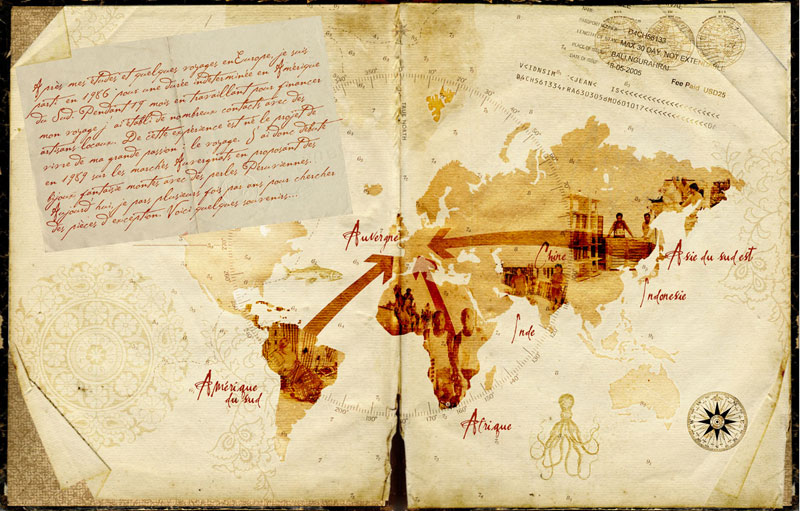 Après mes études et quelques voyages en Europe, je suis
parti en 1986 pour une durée indéterminée en Amérique
du Sud. Pendant 17 mois en travaillant pour financer
mon voyage j'ai établi de nombreux contacts avec des
artisans locaux. De cette expérience est né le projet de
vivre de ma grande passion : le voyage. J'ai donc débuté
en 1989 sur les marchés Auvergnats en proposant des
bijoux fantaisie montés avec des perles Péruviennes.
Aujourd'hui, je pars plusieurs fois par ans pour chercher
des pièces d'exception. Voici quelques souvenirs...
BACH56133
MAX 30 DAY, NOT EXTEND
BALI, NGURAHRAI
18-05-2005
Fee Paid USD25
Auvergne
Chine
Asie du sud est
Indonésie
Inde
Amérique
du sud
Afrique